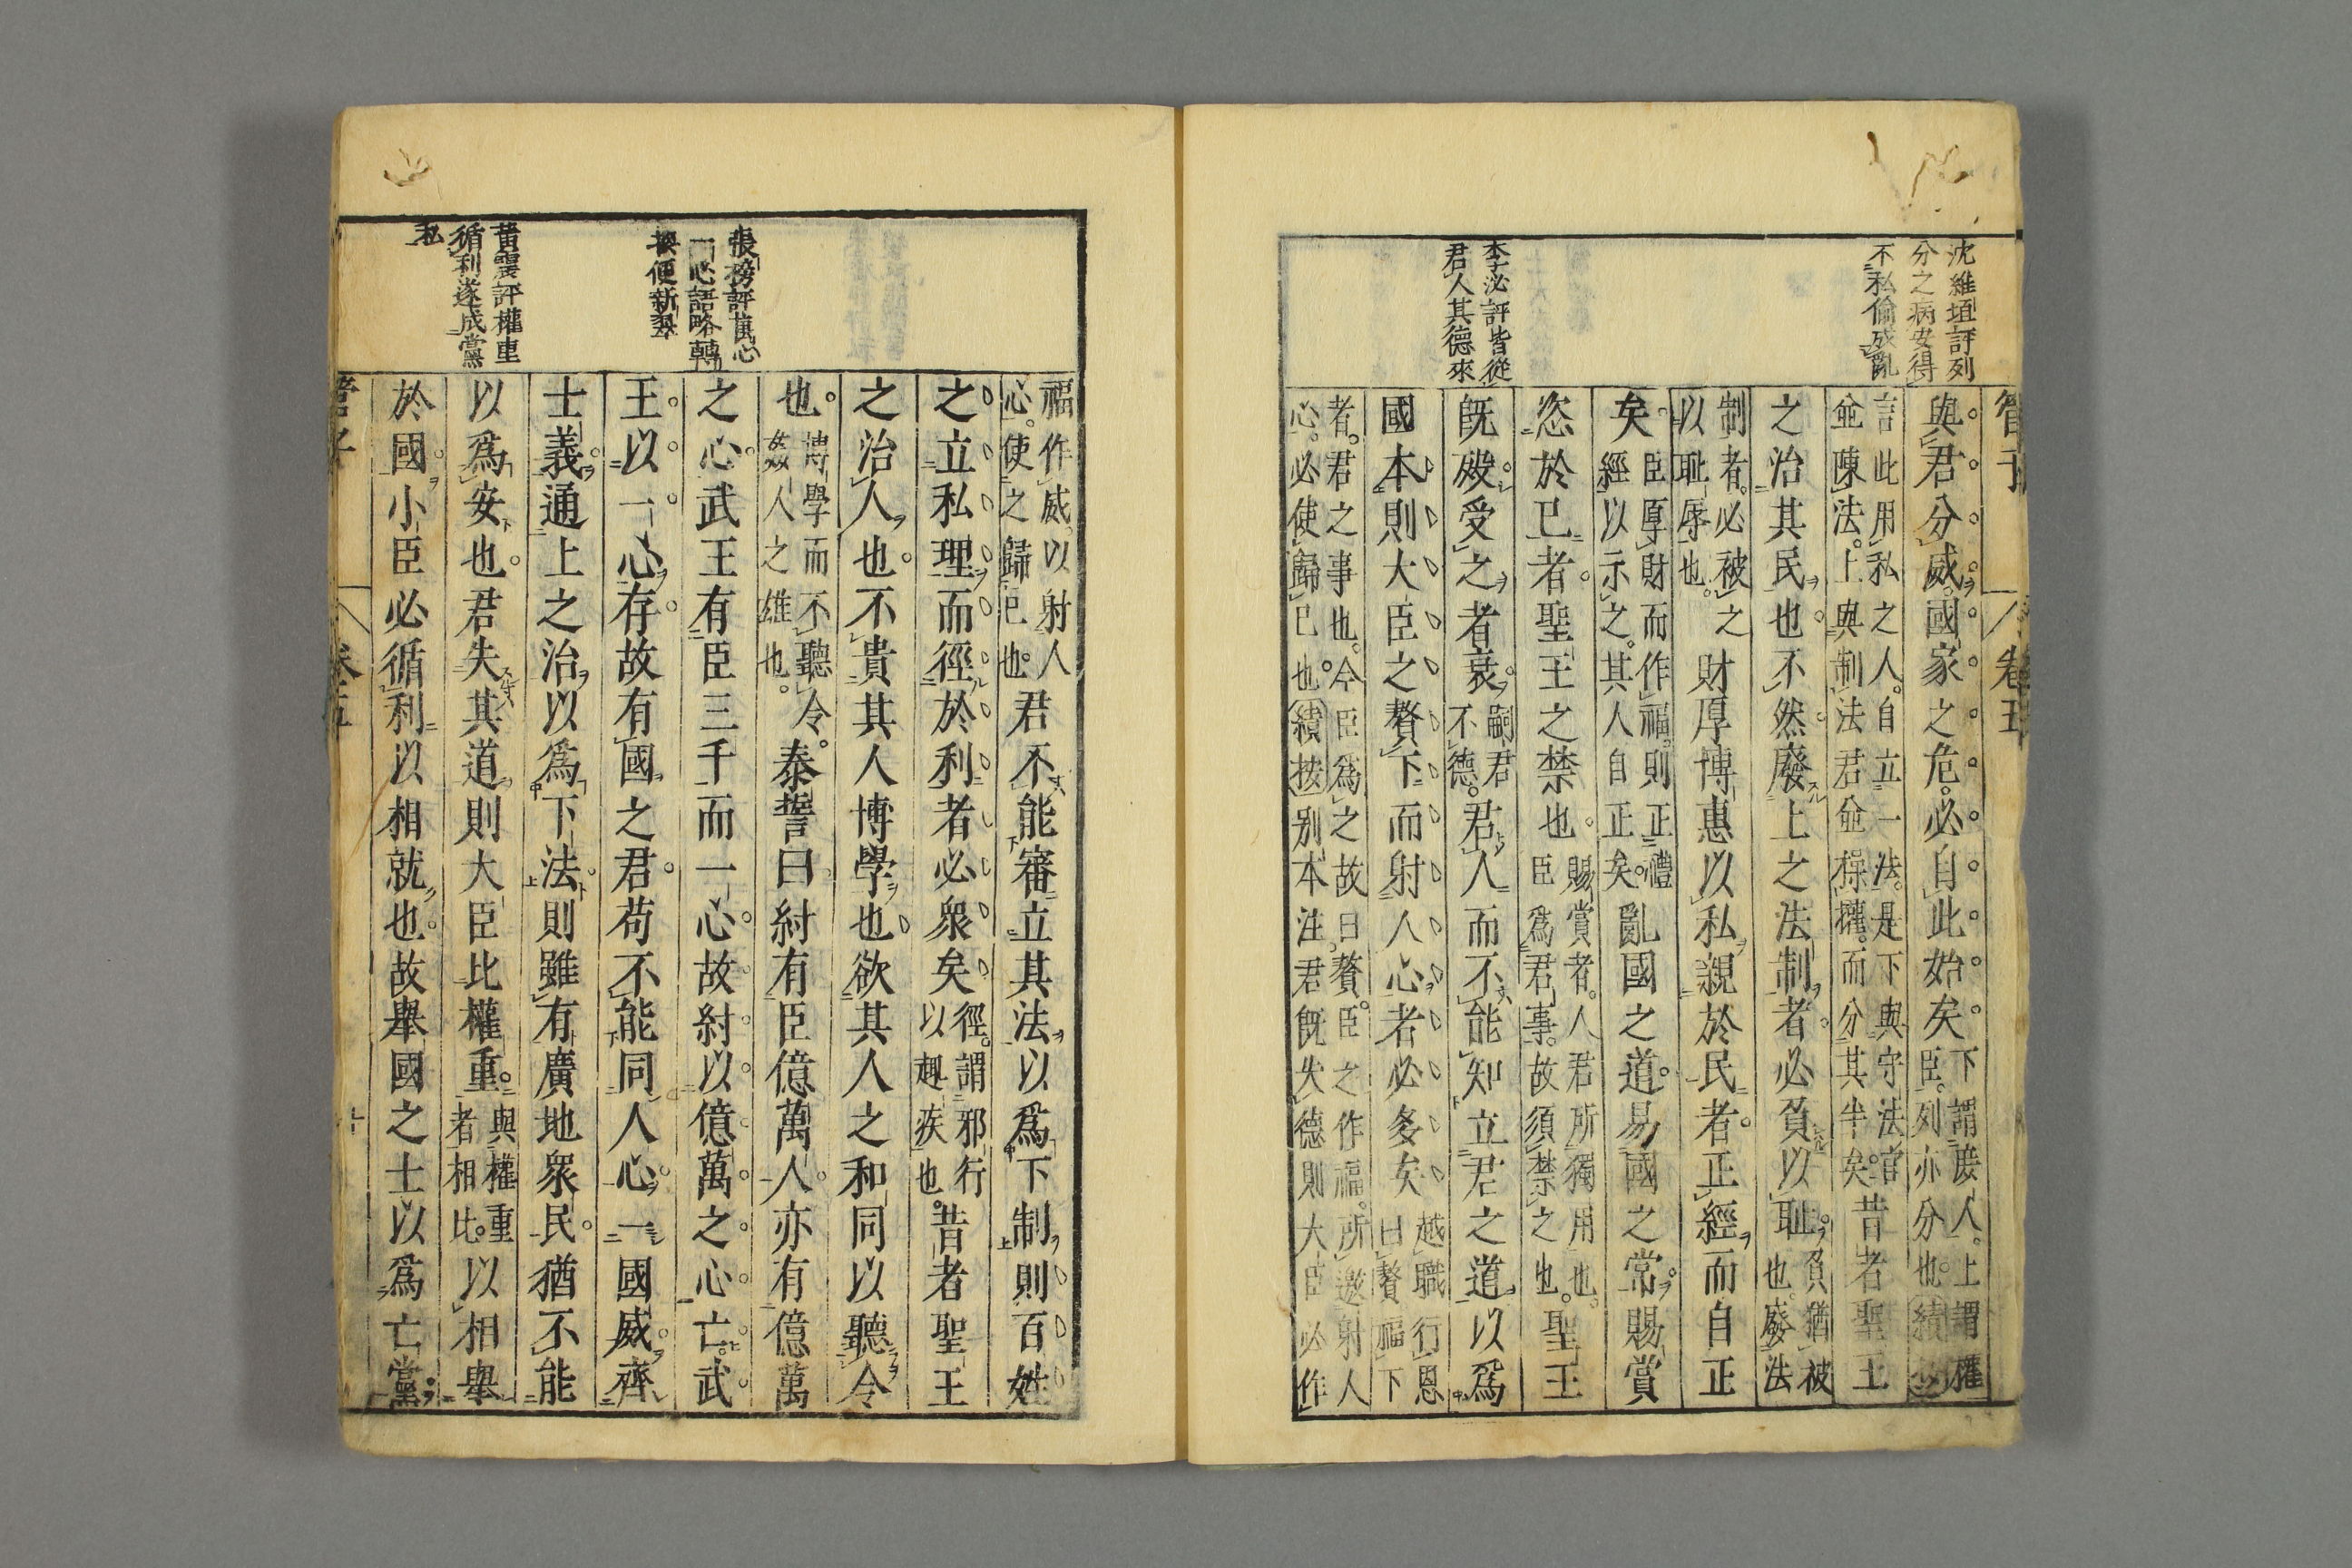 沈維垣評列
分之病安得
不私倫成亂
李泌評皆從
君人其德來
管子
卷五
與君分威國家之危必自此始矣下謂庶人上謂權臣列亦分也績按
言此用私之人自立一法是下與守法官並陳法上與制法君並操權而分其半矣昔者聖王
之治其民也不然廢上之法制者必負以恥負猶被也廢法
制者必被之以耻辱也財厚博惠以私親於民者正經而自正
矣臣厚財而作福則正禮經以示之其人自正矣亂國之道易國之常賜賞
恣於已者聖王之禁也賜賞者人君所獨用也臣爲君事故須禁之也聖王
旣殁受之者衰嗣君不德君人而不能知立君之道以爲
國本則大臣之贅下而射人心者必多矣越職行恩曰贅福下
者君之事也今臣爲之故曰贅臣之作福所邀射人心必使歸已也績按别本注君旣失德則大臣必作
張榜評萬心
一心語略轉
換便新翠
黄震評權重
循利遂成黨
私
福作威以射人心使之歸已也君不能審立其法以爲下制則百姓
之立私理而徑於利者必衆矣徑謂邪行以趣疾也昔者聖王
之治人也不貴其人博學也欲其人之和同以聽令
也博學而不聽令姦人之雄也泰誓曰紂有臣億萬人亦有億萬
之心武王有臣三千而一心故紂以億萬之心亡武
王以一心存故有國之君苟不能同人心一國威齊
士義通上之治以爲下法則雖有廣地衆民猶不能
以爲安也君失其道則大臣比權重與權重者相比以相舉
於國小臣必循利以相就也故舉國之士以爲亡黨
管子
卷五
十